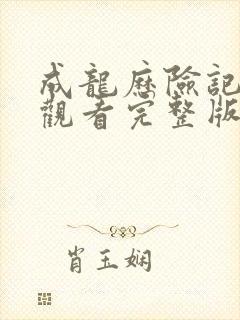 成龍歷險記
觀看完整版
肖玉嫻